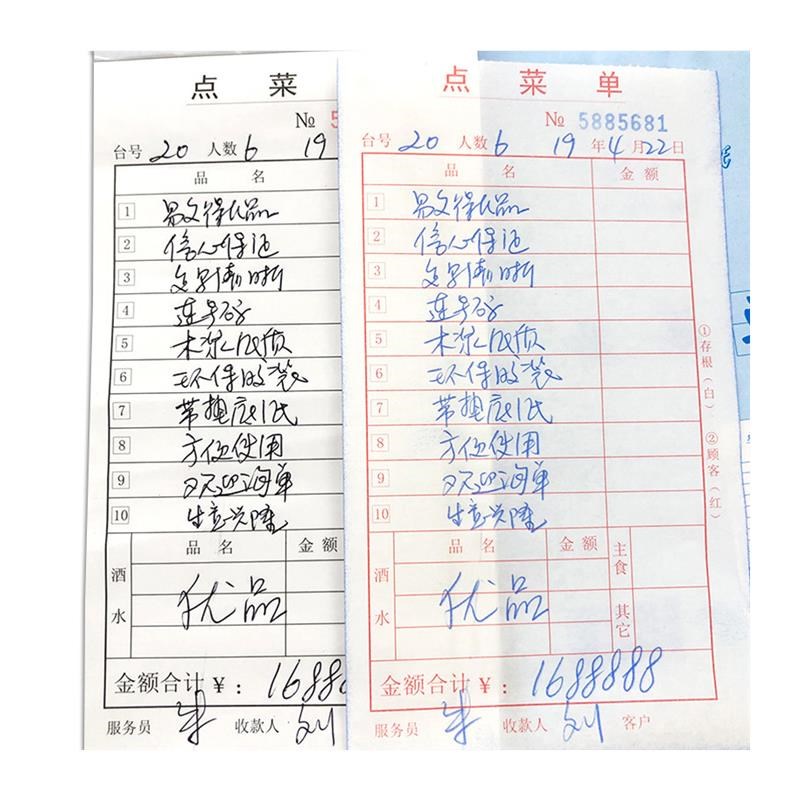 点 菜
№ 5
台号 20 人数 6 19
品 名
1 易文得优品
2 信心保证
3
4 连号码
5 木浆纸质
6 环保
7 带垫底
8 方便使用
9 欢迎淘单
10 生意兴隆
品 名 金 额
酒水
优品
金额合计 ¥ : 1688
服务员 朱 收款人 刘
点 菜 单
№ 5885681
台号 20 人数 6 19 年 4 月 22 日
品 名 金 额
1 易文得优品
2 信心保证
3
4 连号码
5 木浆纸质
6 环保
7 带垫底
8 方便使用
9 欢迎淘单
10 生意兴隆
品 名 金 额 主食
酒水
优品
其它
金额合计 ¥ : 1688888
服务员 朱 收款人 刘 客户
①存根(白) ②顾客(红)